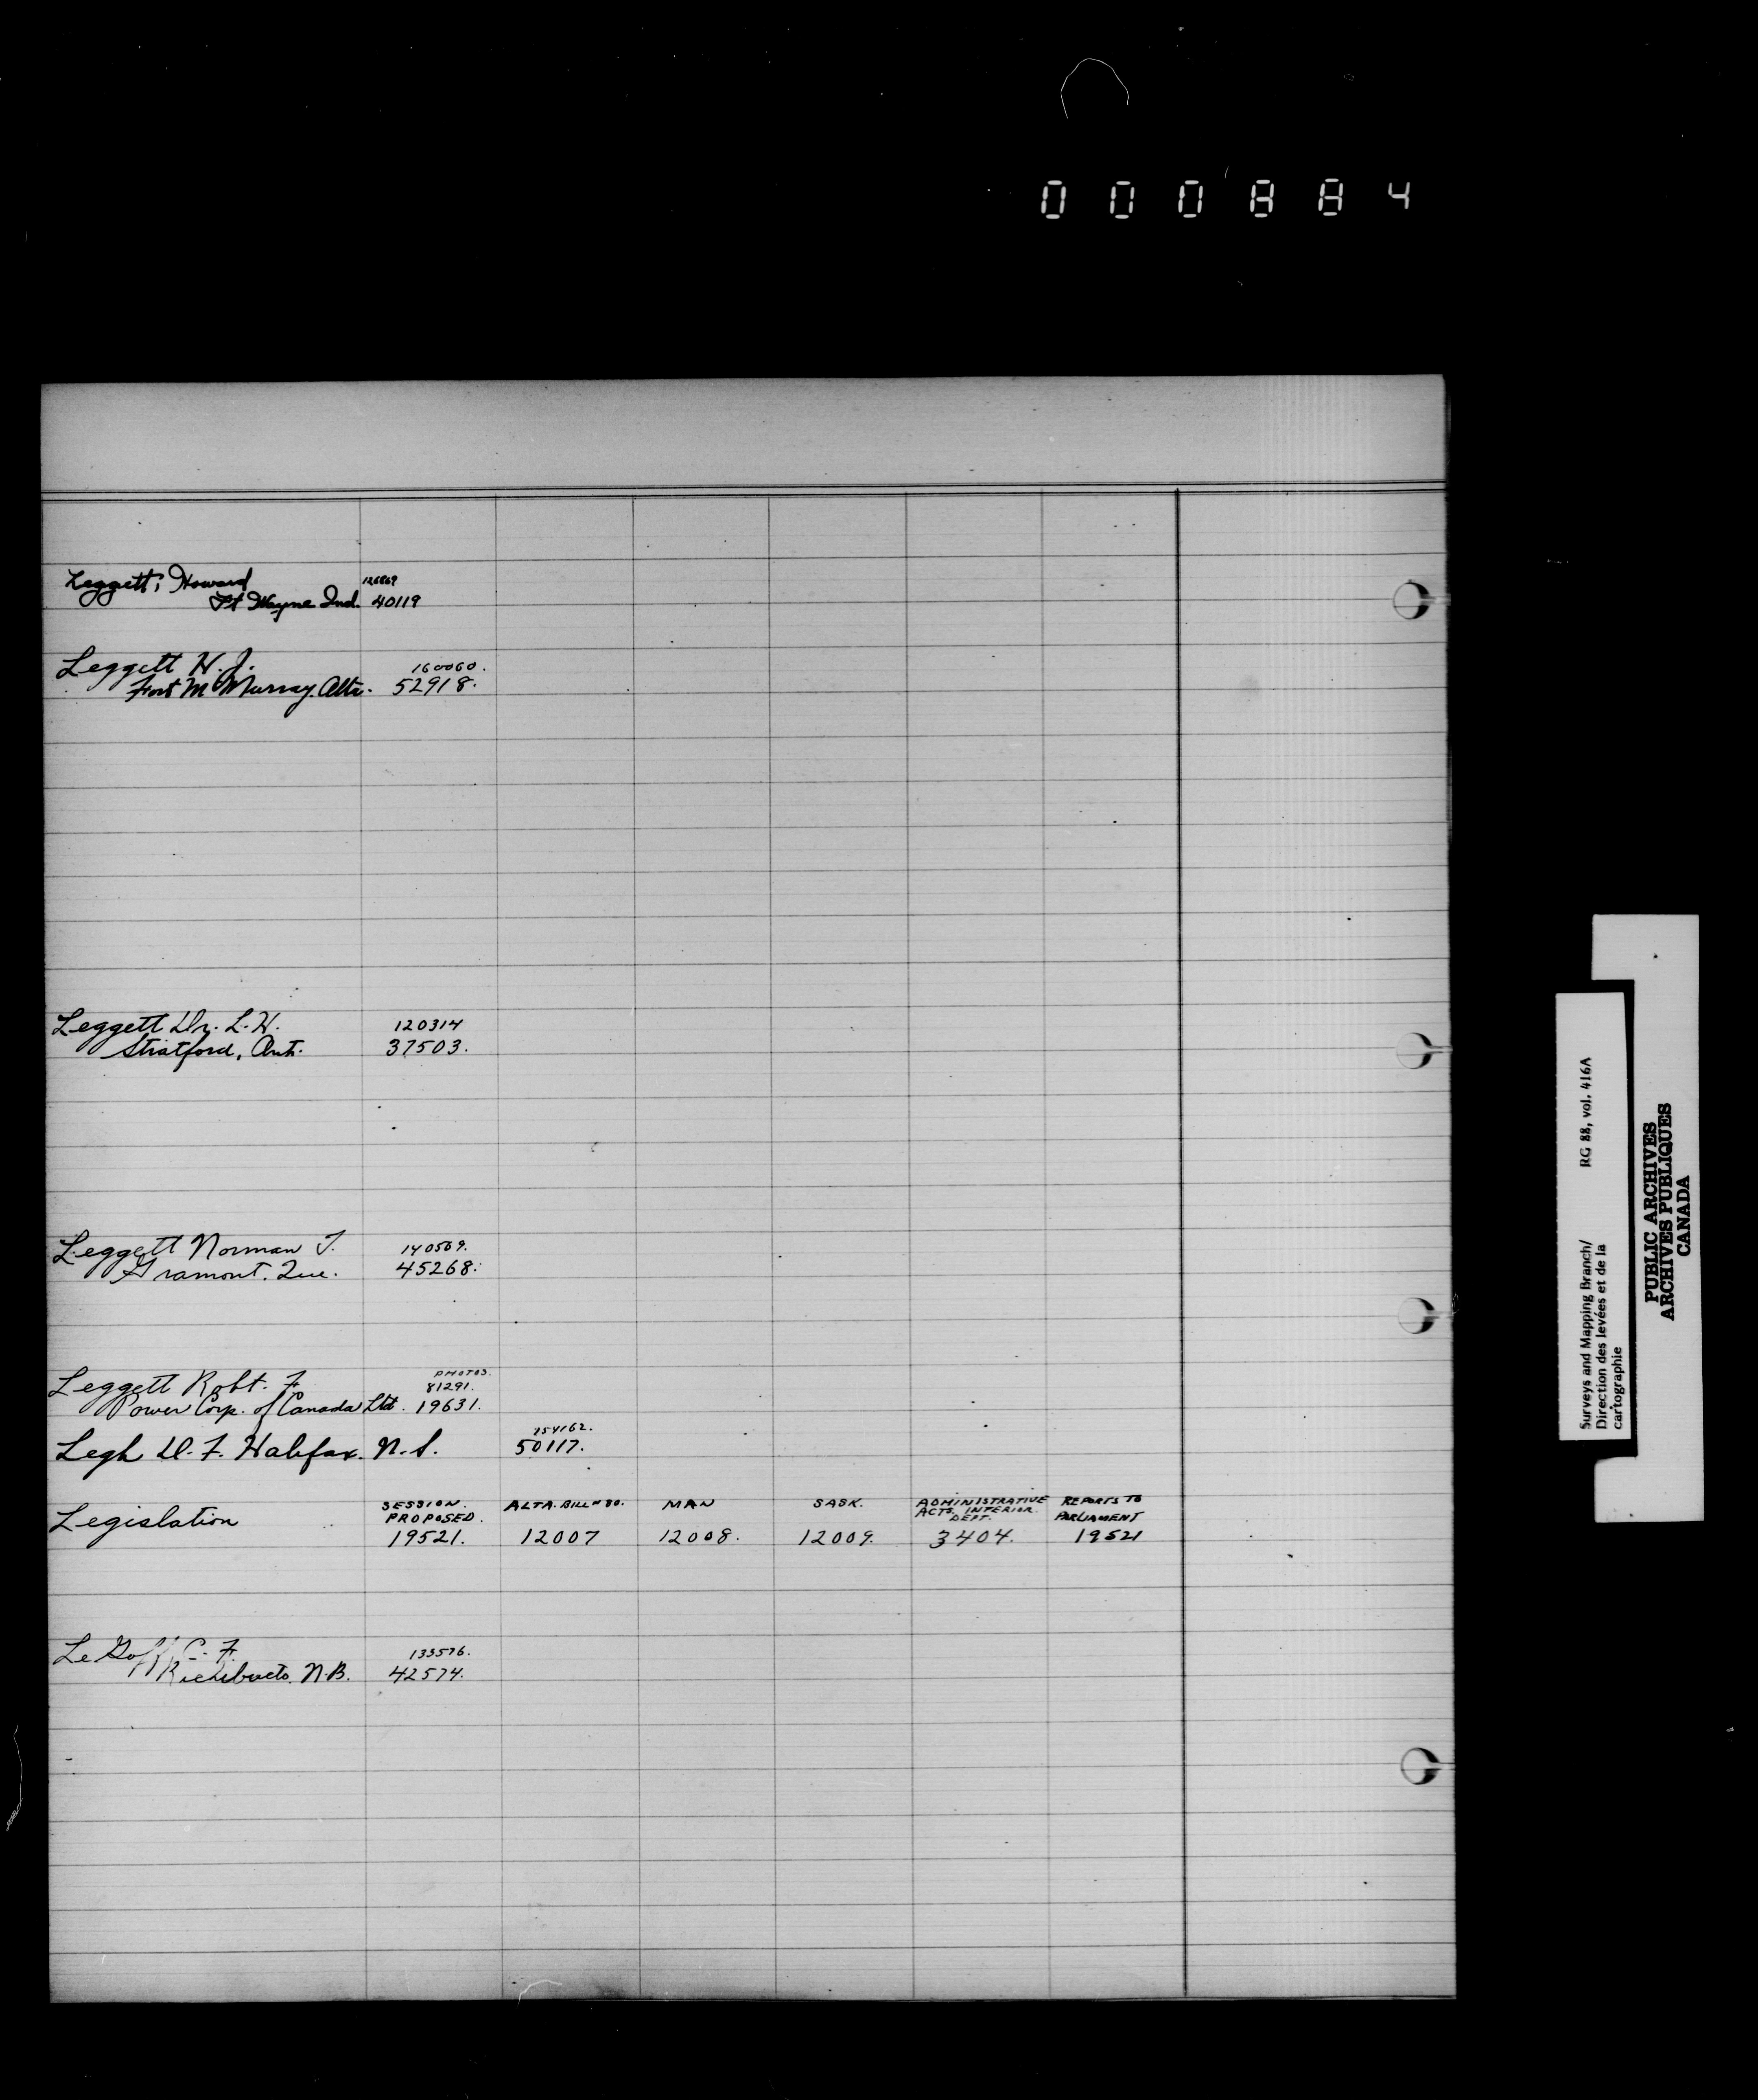 000884
Leggett; Howard 126869
Ft Wayne Ind. 40119
Leggett H. J. 160060.
Fort McMurray. Alta. 52918.
Leggett Dr. L. H. 120314
Stratford, Ont. 37503.
Leggett Norman T. 140569.
Gramont. Que. 45268.
PHOTOS.
Leggett Robt. F. 81291.
Power Corp. of Canada Ltd. 19631.
154162.
Legh D. F. Halifax. N.S. 50117.
Legislation SESSION. PROPOSED. ALTA. BILL Nº 80. MAN SASK. ADMINISTRATIVE ACTS. INTERIOR DEPT. REPORTS TO PARLIAMENT
19521. 12007 12008. 12009. 3404. 19521
Le Goff C. F. 133576.
Richibucto. N.B. 42574.
Surveys and Mapping Branch/ RG 88, vol. 416A
Direction des levées et de la
cartographie
PUBLIC ARCHIVES
ARCHIVES PUBLIQUES
CANADA